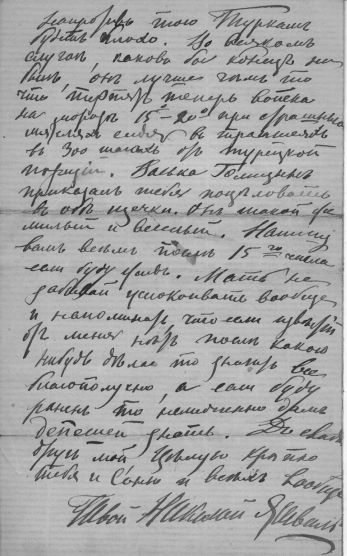 напротивъ того Туркамъ
будетъ плохо. Во всякомъ
случаѣ, каковъ бы конецъ ни
былъ, онъ лучше чѣмъ то
что терпятъ теперь войска
на морозѣ 15°-20° при страшныхъ
мятеляхъ сидя въ траншеяхъ
въ 300 шагахъ отъ турецкой
позиціи. Васька Голицынъ
приказалъ тебя поцѣловать
въ обѣ щечки. Онъ такой же
милый и веселый. Напишу
вамъ всѣмъ послѣ 15го числа
если буду живъ. Мать не
забывай успокоивать вообще
и напоминать, что если извѣстій
отъ меня нѣтъ послѣ какого
нибудь дѣла то значитъ все
благополучно, а если буду
раненъ то немедленно дамъ
депешей знать. До свид.
другъ мой цѣлую крѣпко
тебя и Соню и всѣхъ вообще
Твой Николай